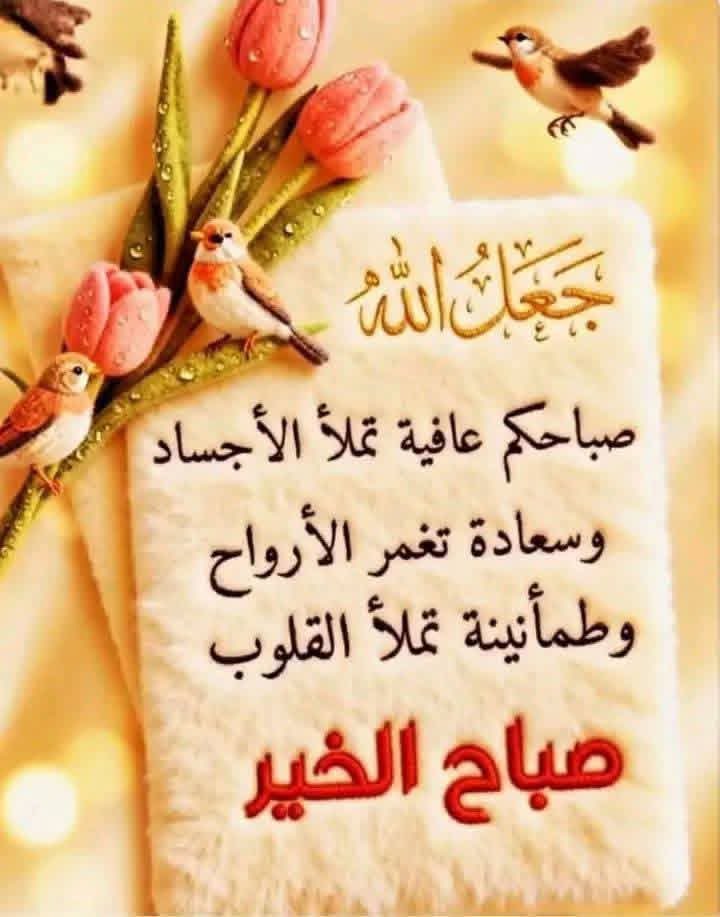 جَعَلُ اللهُ
صباحكم عافية تملأ الأجساد
وسعادة تغمر الأرواح
وطمأنينة تملأ القلوب
صباح الخير